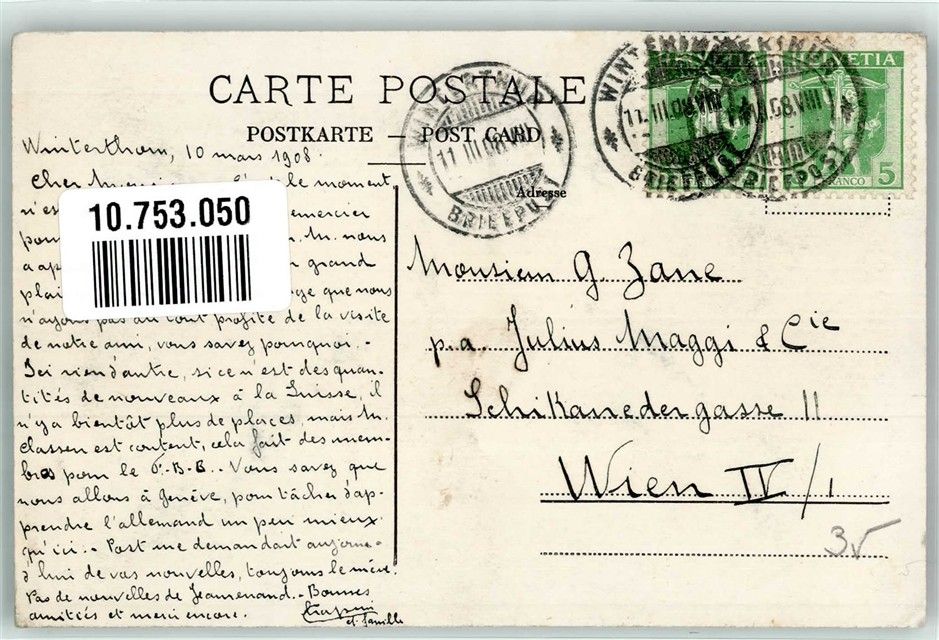 CARTE POSTALE
POSTKARTE — POST CARD
WINTERTHUR
11.III.08.VIII
BRIEFPOST
WINTERTHUR
11.III.08.VIII
BRIEFPOST
HELVETIA
FRANCO 5
Adresse
Winterthour, 10 mars 1908.
Cher le moment
n'es remercier
pour M. nous
a ap grand
plai que nous
n'ayons pas au tout profité de la visite
de notre ami, vous savez pourquoi.-
Ici rien d'autre, si ce n'est des quan-
tités de nouveaux à la Suisse, il
n'y a bientôt plus de places, mais M.
Classen est content, cela fait des mem-
bres pour le B.. Vous savez que
nous allons à Genève, pour tâcher d'ap-
prendre l'allemand un peu mieux
qu'ici.- Post me demandait aujour-
d'hui de vos nouvelles, toujours le même.
Pas de nouvelles de .- Bonnes
amitiés et merci encore.
et famille
10.753.050
Monsieur G. Zane
p.a. Julius Maggi & Cie
Schikanedergasse 11
Wien IV/1